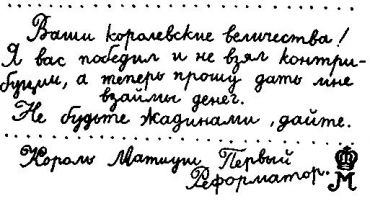 Ваши королевские величества!
Я вас победил и не взял контри-
буции, а теперь прошу дать мне
взаймы денег.
Не будьте жадинами, дайте.
Король Матиуш Первый
Реформатор.
М